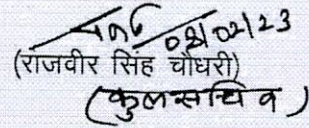 02/02/23
(राजवीर सिंह चौधरी)
(कुलसचिव)